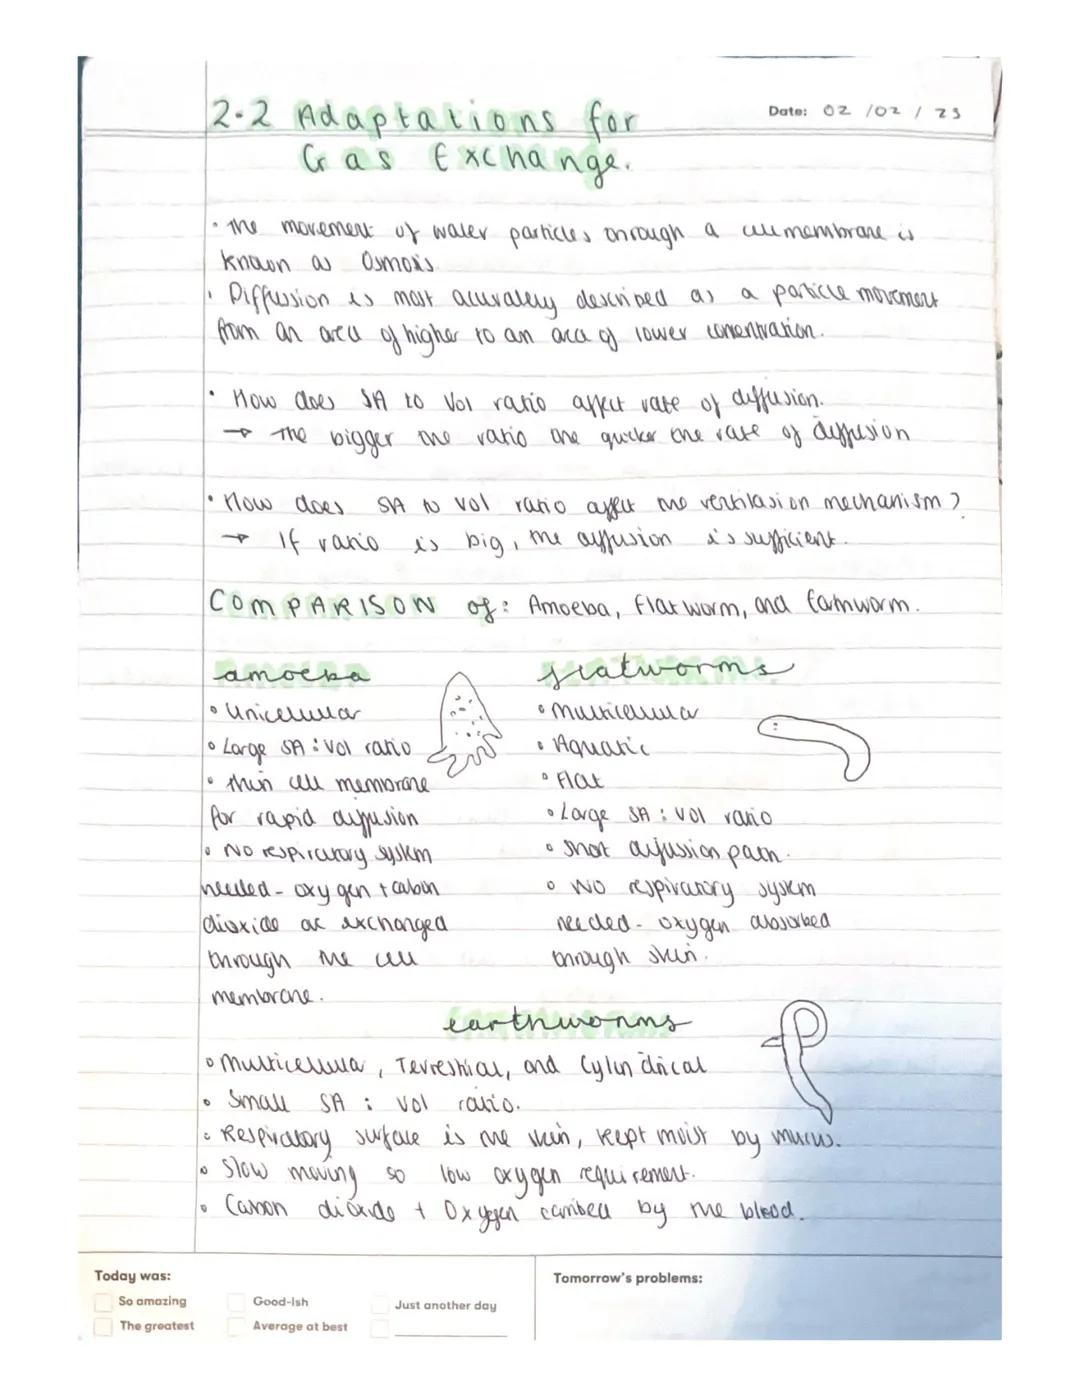 2.2 Adaptations for
Gas Exchange.
Date: 02 / 02 / 23
• The movement of water particles through a cell membrane is
known as Osmosis.
• Diffussion is most accurately described as a particle movement
from an area of higher to an area of lower concentration.
• How does SA to Vol ratio affect rate of diffusion.
→ The bigger the ratio the quicker the rate of diffusion
• How does SA to vol ratio affect the ventilasion mechanism?
→ If ratio is big, the diffusion is sufficient.
COMPARISON of: Amoeba, flatworm, and Earthworm.
amoeba
• Unicellular
• Large SA : Vol ratio
• thin cell membrane
for rapid diffusion
• NO respiratory system
needed - oxygen + cabon
dioxide are exchanged
through the cell
membrane.
flatworms
• Multicellular
• Aquatic
• Flat
• Large SA : Vol ratio
• Short diffussion path.
• NO respiratory system
needed - oxygen absorbed
through skin.
earthworms
• Multicellular, Terrestrial, and Cylindrical
• Small SA : Vol ratio.
• Respiratory surface is the skin, kept moist by mucus.
• Slow moving so low oxygen requirement.
• Carbon dioxide + Oxygen carried by the blood.
Today was:
So amazing
Good-ish
Just another day
The greatest
Average at best
Tomorrow's problems: